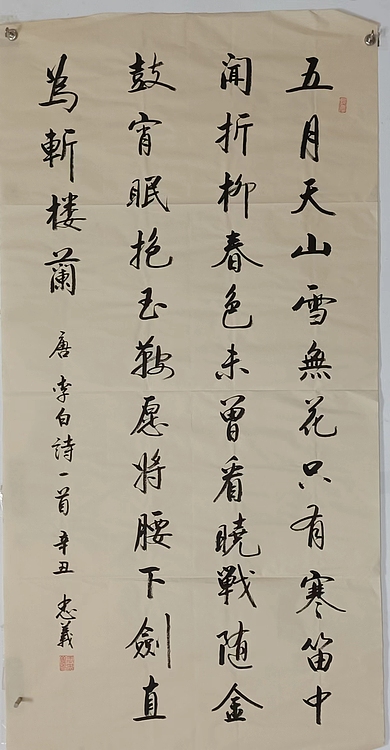 五月天山雪無花只有寒笛中
闻折柳春色未曾看曉戰随金
鼓宵眠抱玉鞍愿将腰下劍直
為斬楼蘭
唐李白詩一首辛丑忠義